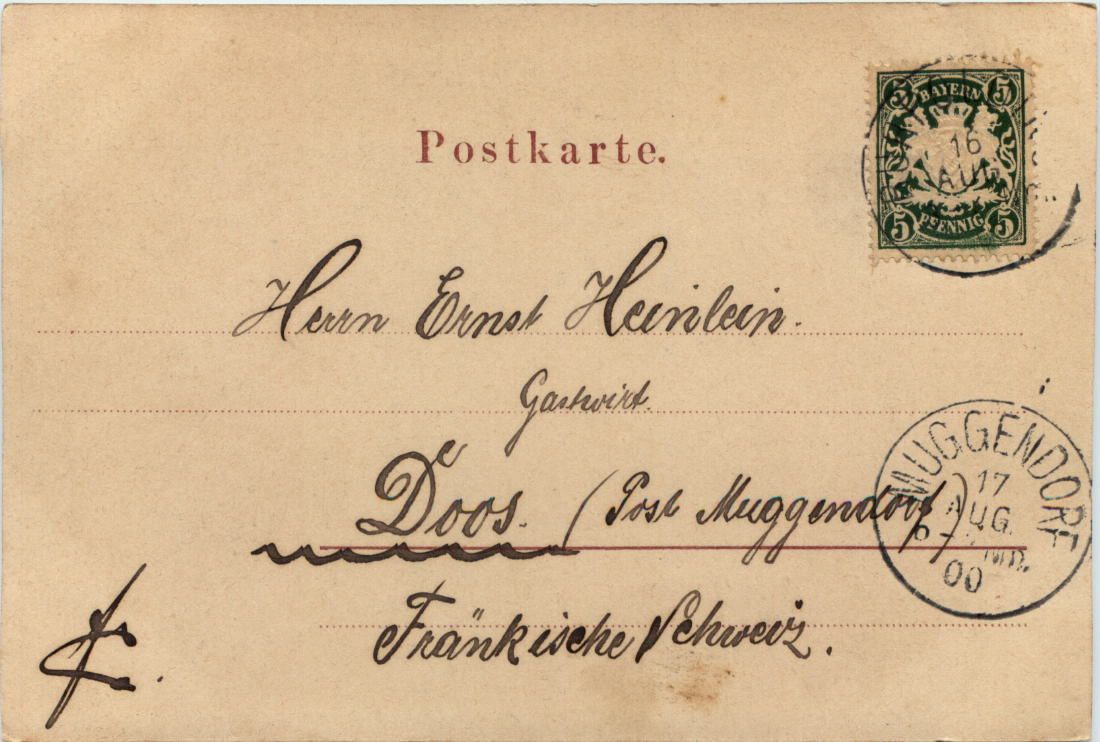 Postkarte.
5 BAYERN 5
16
AUG
5 PFENNIG 5
Herrn Ernst Heinlein.
Gastwirt.
Doos. (Post Muggendorf)
Fränkische Schweiz.
MUGGENDORF
17
AUG.
00